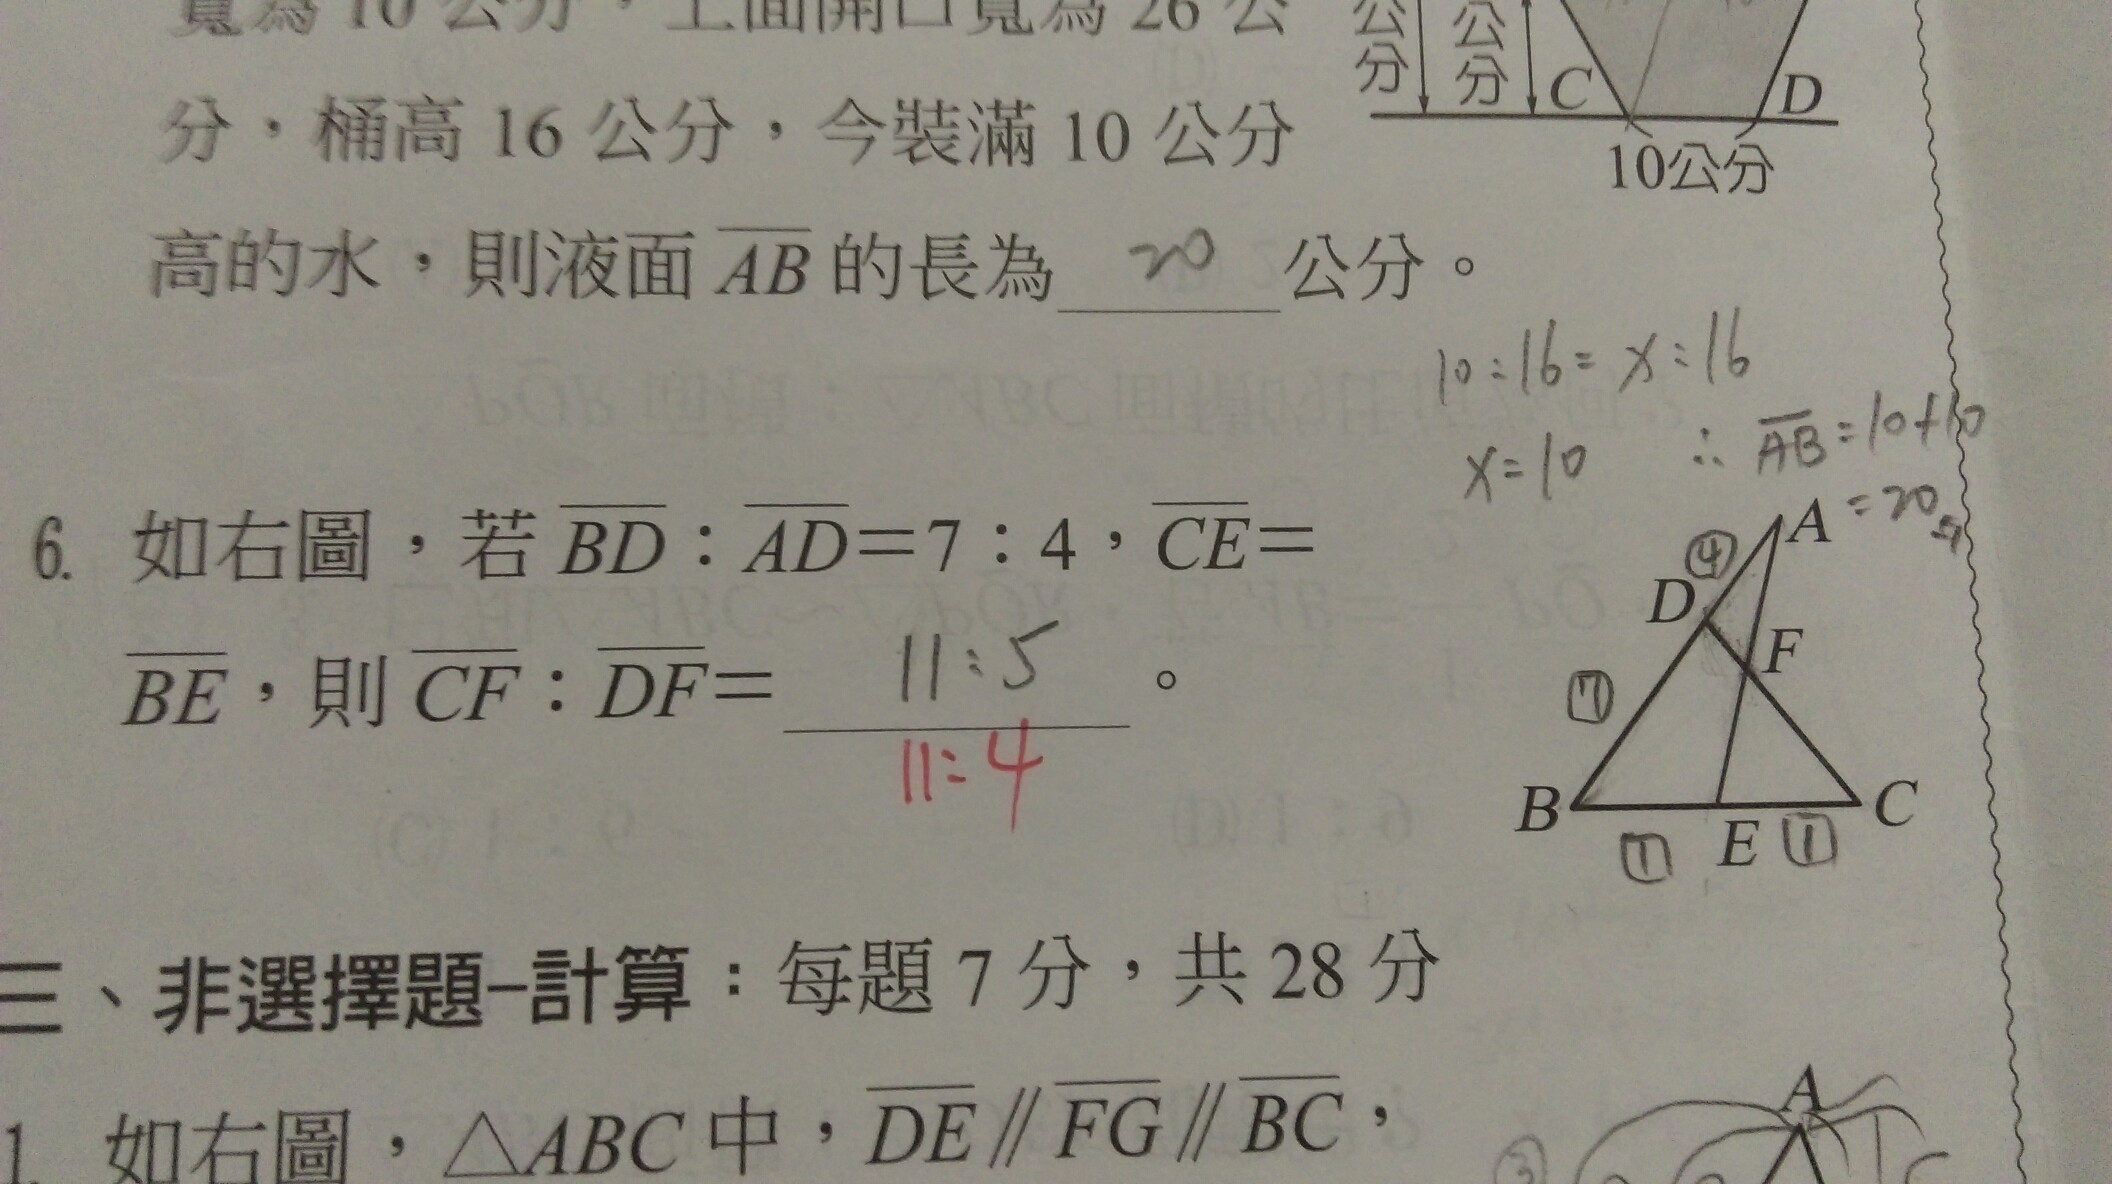 寬為 10 公分，上面開口寬為 26 公
分，桶高 16 公分，今裝滿 10 公分
高的水，則液面 AB 的長為 20 公分。
公分
公分
C
D
10公分
10:16=x:16
x=10 ∴ AB=10+10
=20
6. 如右圖，若 BD：AD＝7：4，CE＝
BE，則 CF：DF＝ 11:5 。
11:4
A
④
D
F
7
B
E
C
1
1
三、非選擇題–計算：每題 7 分，共 28 分
1. 如右圖，△ABC 中，DE // FG // BC，
A
③